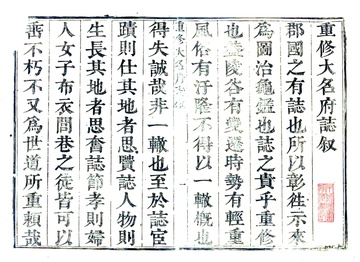 重修大名府誌叙
郡國之有誌也所以彰徃示來
爲圖治龜鑑也誌之貴乎重修
也蓋陵谷有變遷時勢有輕重
風俗有汙隆不得以一轍概也
得失誠哉非一轍也至於誌宦
蹟則仕其地者思賢誌人物則
生長其地者思奮誌節孝則婦
人女子布衣閭巷之徒皆可以
善不朽不又爲世道所重賴哉